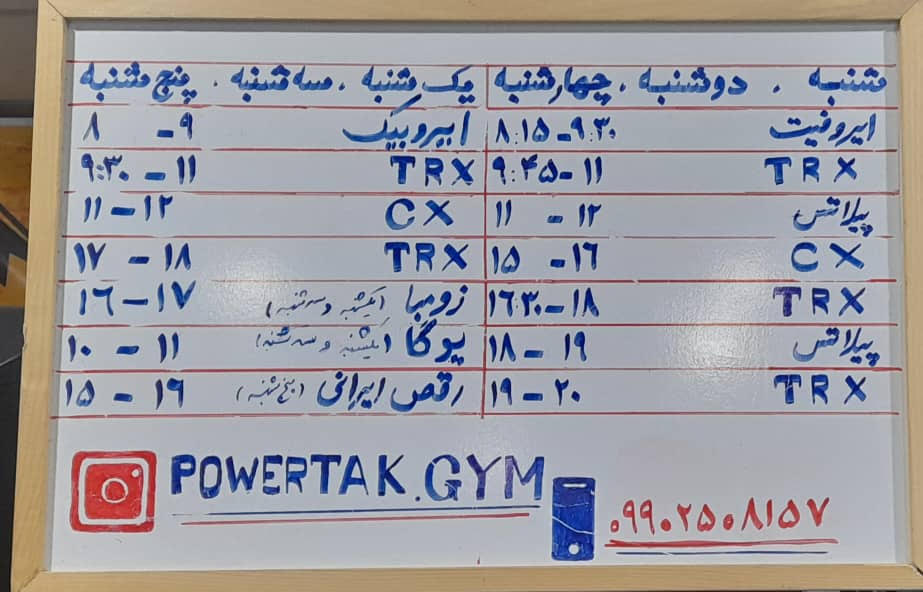 شنبه . دوشنبه . چهارشنبه
ایروفیت ۸:۱۵-۹:۳۰
TRX ۹:۴۵-۱۱
پیلاتس ۱۱ - ۱۲
CX ۱۵ - ۱۶
TRX ۱۶:۳۰-۱۸
پیلاتس ۱۸ - ۱۹
TRX ۱۹-۲۰
یک شنبه . سه شنبه . پنج شنبه
ایروبیک ۸ - ۹
TRX ۹:۳۰ - ۱۱
CX ۱۱-۱۲
TRX ۱۷ - ۱۸
زومبا (یکشنبه و سه شنبه) ۱۶-۱۷
یوگا (یکشنبه و سه شنبه) ۱۰ - ۱۱
رقص ایرانی (پنج شنبه) ۱۵ - ۱۶
POWERTAK.GYM
۰۹۹۰۲۵۰۸۱۵۷